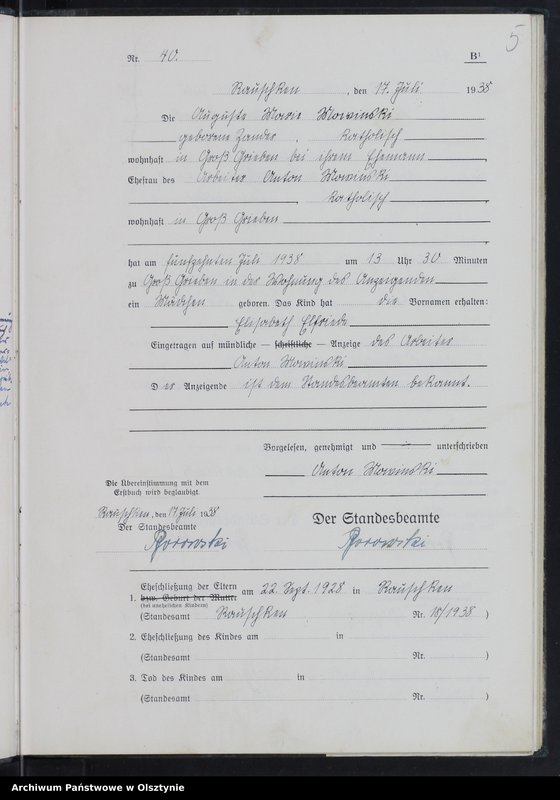 5
Nr. 40. B¹
Rauschken, den 17. Juli 1938
Die Auguste Marie Mowinski
geborene Zander, katholisch
wohnhaft in Groß Grieben bei ihrem Ehemann,
Ehefrau des Arbeiter Anton Mowinski
, katholisch,
wohnhaft in Groß Grieben
,
hat am fünfzehnten Juli 1938 um 13 Uhr 30 Minuten
zu Groß Grieben in der Wohnung des Anzeigenden
ein Mädchen geboren. Das Kind hat die Vornamen erhalten:
Elisabeth Elfriede
Eingetragen auf mündliche — schriftliche — Anzeige des Arbeiter
Anton Mowinski
Der Anzeigende ist dem Standesbeamten bekannt.
Vorgelesen, genehmigt und unterschrieben
Anton Mowinski
Die Übereinstimmung mit dem
Erstbuch wird beglaubigt.
Rauschken, den 17 Juli 1938
Der Standesbeamte
Der Standesbeamte
Borowski
Borowski
1. Eheschließung der Eltern
bzw. Geburt der Mutter
(bei unehelichen Kindern)
am 22. Sept. 1928 in Rauschken
(Standesamt Rauschken Nr. 18/1938)
2. Eheschließung des Kindes am in
(Standesamt Nr. )
3. Tod des Kindes am in
(Standesamt Nr. )
Archiwum Państwowe w Olsztynie